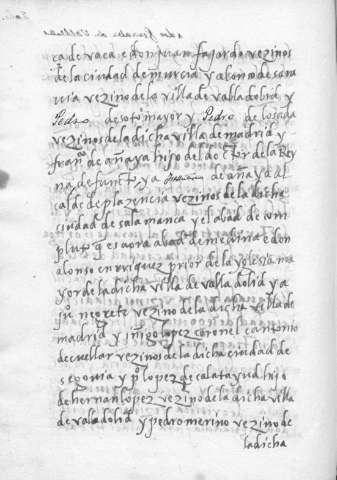 ca de vaca e don juan fajardo vezinos
de la ciudad de murcia y a alonso de sara
uia vezino de la villa de valladolid y
Pedro de soto mayor y Pedro de losada
vezinos de la dicha villa de madrid y
fran.co de anaya hijo del doctor de la Rey
na defunct.. y a de anaya al
calde de plazencia vezinos de la dicha
ciudad de salamanca y el abad de com
pluto q es aora abad de medina e don
alonso enrriquez prior de la yglesia ma
yor de la dicha villa de valladolid y a
ju.o negrete vezino de la dicha villa de
madrid y iñigo lopez coronel e antonio
de cuellar vezinos de la dicha ciudad de
segouia y p.o lopez de calatayud hijo
de hernan lopez vezino de la dicha villa
de valladolid y pedro merino vezino de
la dicha